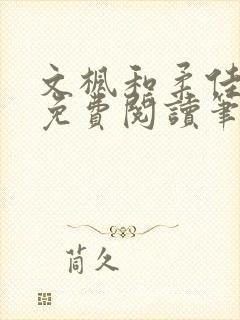 文楓和柔佳
免費閱讀筆
茼久